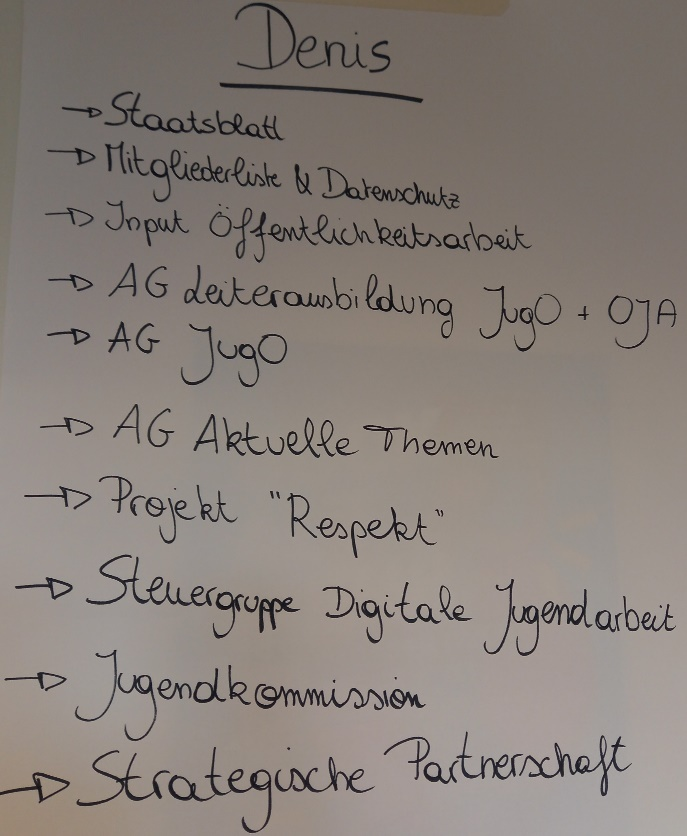 Denis
→ Staatsblatt
→ Mitgliederliste & Datenschutz
→ Input Öffentlichkeitsarbeit
→ AG Leiterausbildung JugO + OJA
→ AG JugO
→ AG Aktuelle Themen
→ Projekt "Respekt"
→ Steuergruppe Digitale Jugendarbeit
→ Jugendkommission
→ Strategische Partnerschaft